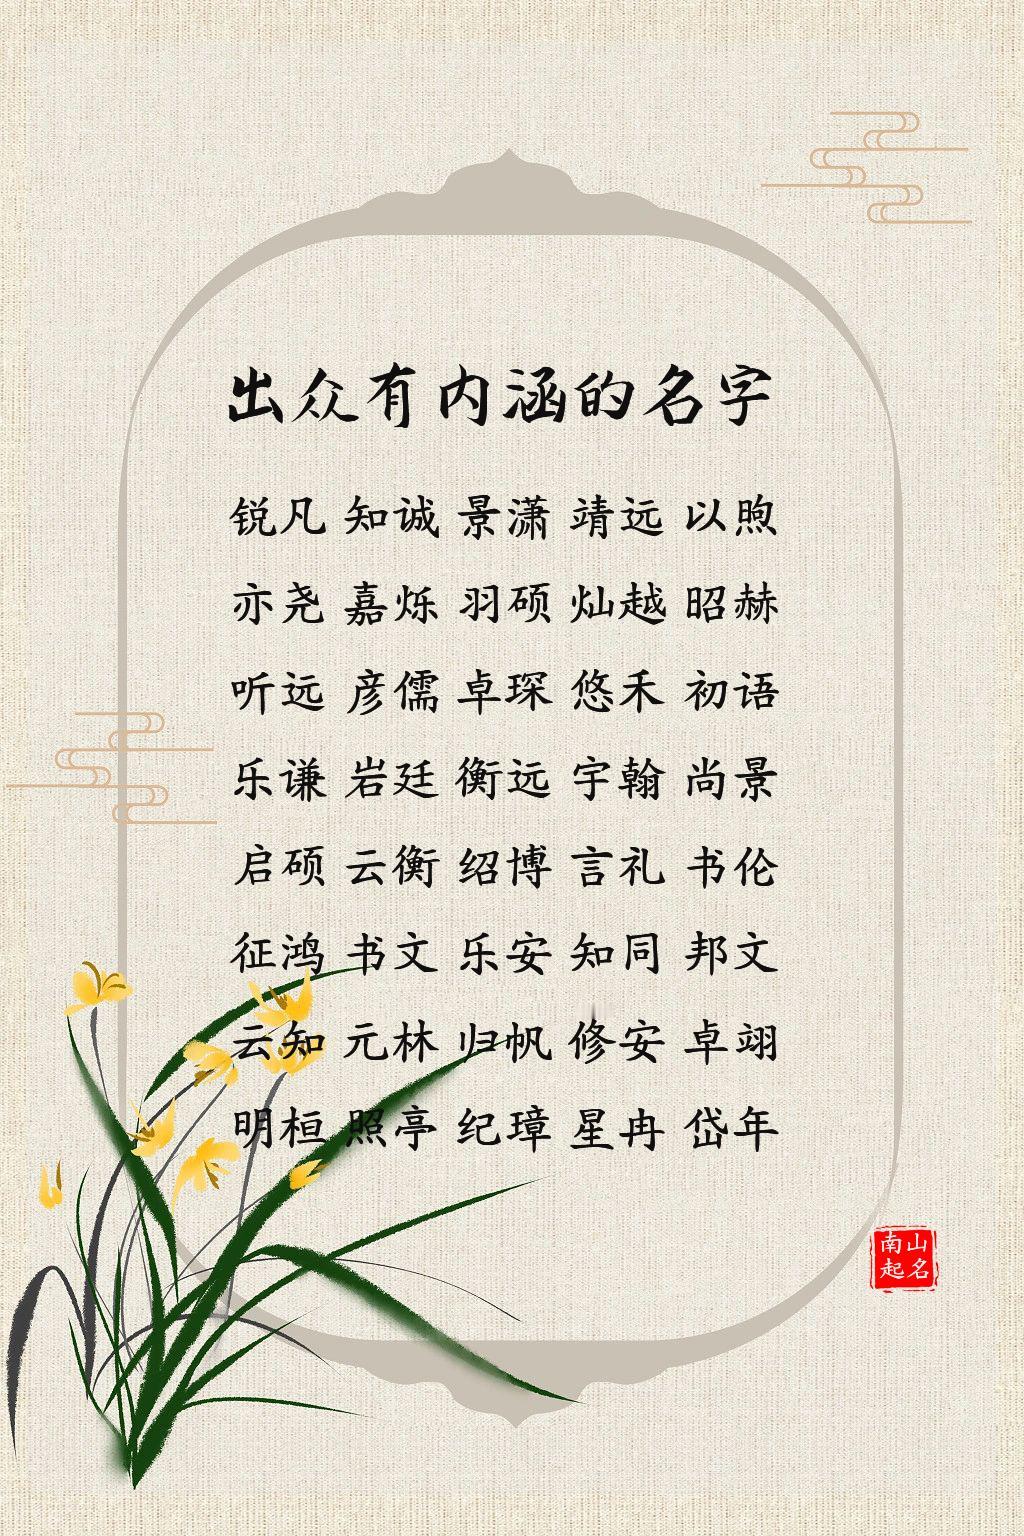 出众有内涵的名字
锐凡 知诚 景潇 靖远 以煦
亦尧 嘉烁 羽硕 灿越 昭赫
听远 彦儒 卓琛 悠禾 初语
乐谦 岩廷 衡远 宇翰 尚景
启硕 云衡 绍博 言礼 书伦
征鸿 书文 乐安 知同 邦文
云知 元林 归帆 修安 卓翊
明桓 照亭 纪璋 星冉 岱年
南山
起名